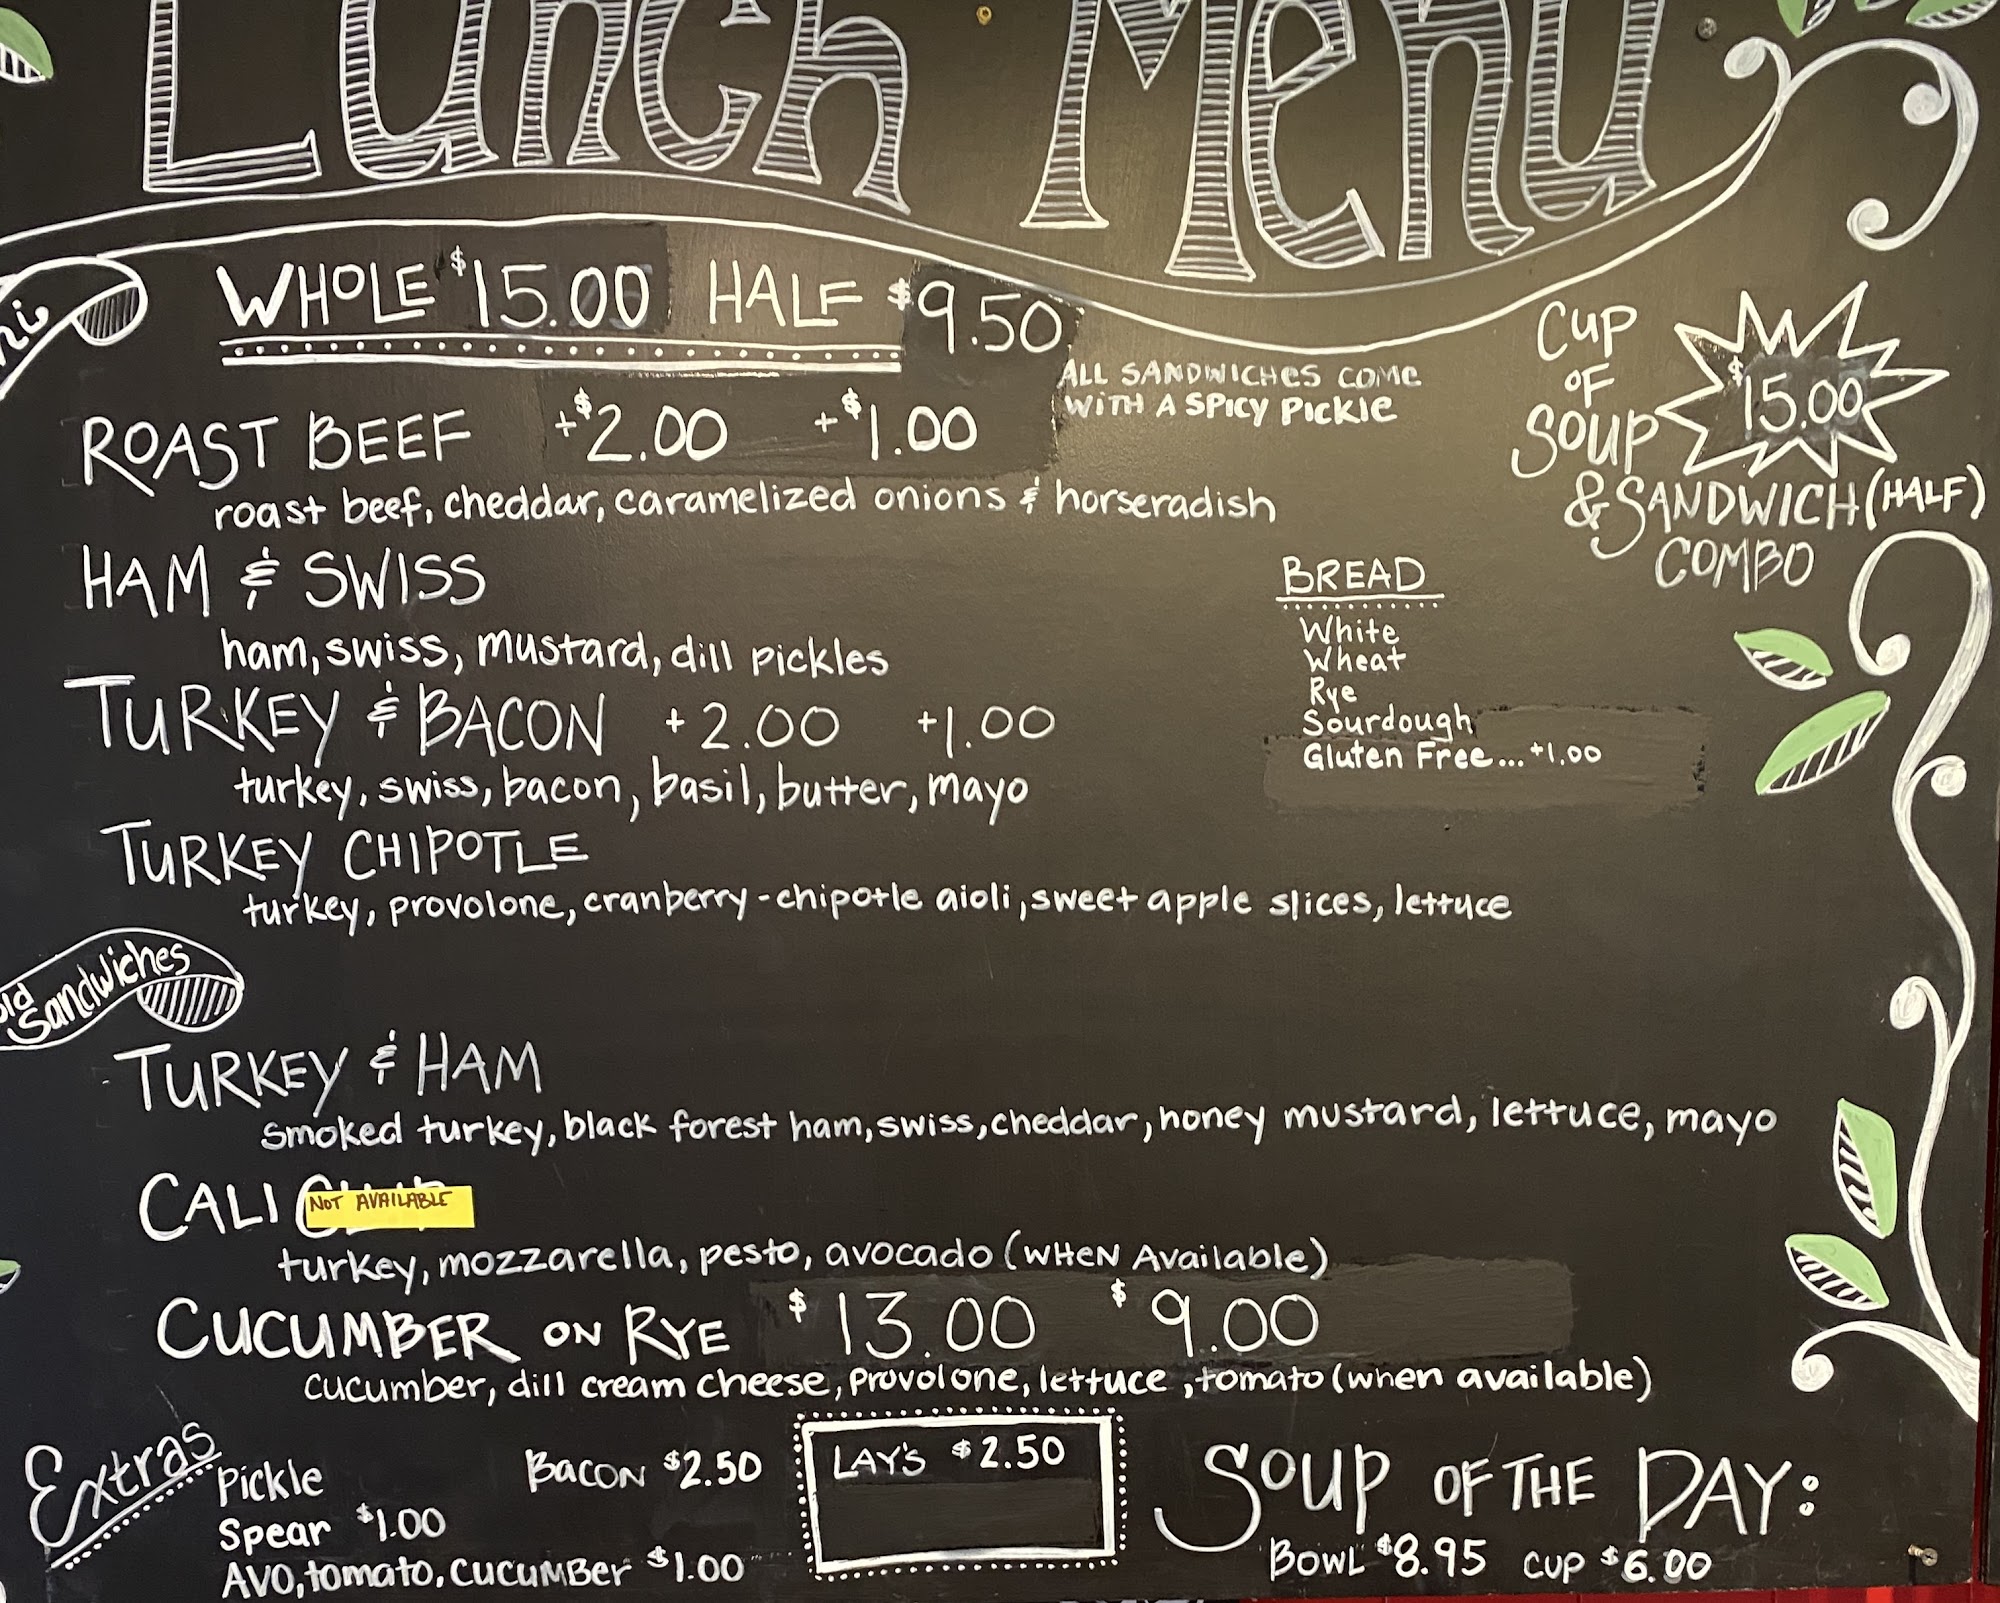 Lunch Menu
WHOLE $15.00 HALF $9.50
ALL SANDWICHES COME
WITH A SPICY PICKLE
CUP
OF
SOUP
$15.00
& SANDWICH (HALF)
COMBO
ROAST BEEF +$2.00 +$1.00
roast beef, cheddar, caramelized onions & horseradish
HAM & SWISS
ham, swiss, mustard, dill pickles
TURKEY & BACON +2.00 +1.00
turkey, swiss, bacon, basil, butter, mayo
TURKEY CHIPOTLE
turkey, provolone, cranberry-chipotle aioli, sweet apple slices, lettuce
BREAD
White
Wheat
Rye
Sourdough
Gluten Free... +1.00
Sandwiches
TURKEY & HAM
smoked turkey, black forest ham, swiss, cheddar, honey mustard, lettuce, mayo
CALI
NOT AVAILABLE
turkey, mozzarella, pesto, avocado (WHEN Available)
CUCUMBER ON RYE $13.00 $9.00
cucumber, dill cream cheese, provolone, lettuce, tomato (when available)
Extras
Pickle
Spear $1.00
AVO, tomato, CUCUMBER $1.00
BACON $2.50
LAY'S $2.50
SOUP OF THE DAY:
BOWL $8.95 CUP $6.00